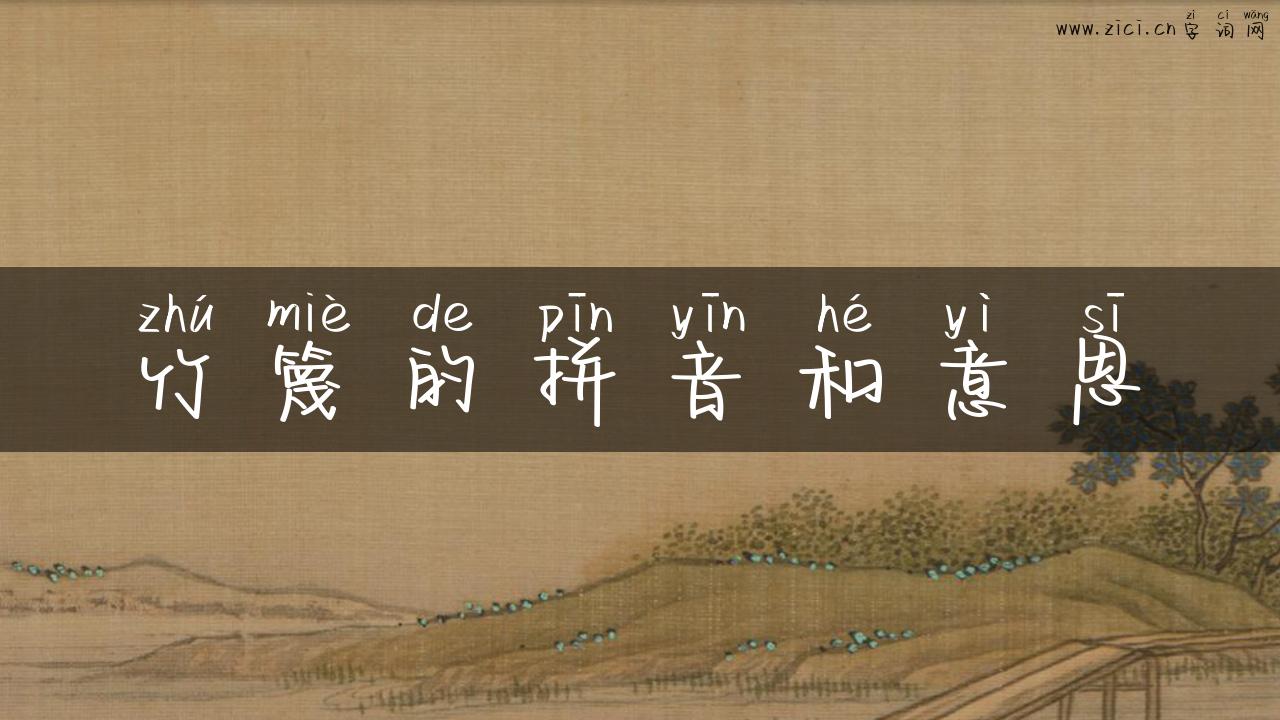 zì cí wǎng
www.zici.cn字词网
zhú miè de pīn yīn hé yì sī
竹篾的拼音和意思